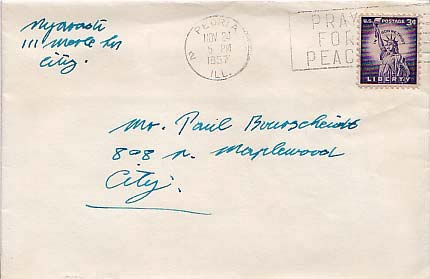 111 Merle Ln
City.
PEORIA
NOV 24
5 PM
1957
ILL.
2
PRAY
FOR
PEACE
U.S. POSTAGE 3¢
IN GOD WE TRUST
LIBERTY
Mr. Paul Bourscheidt
808 N. Maplewood
City.